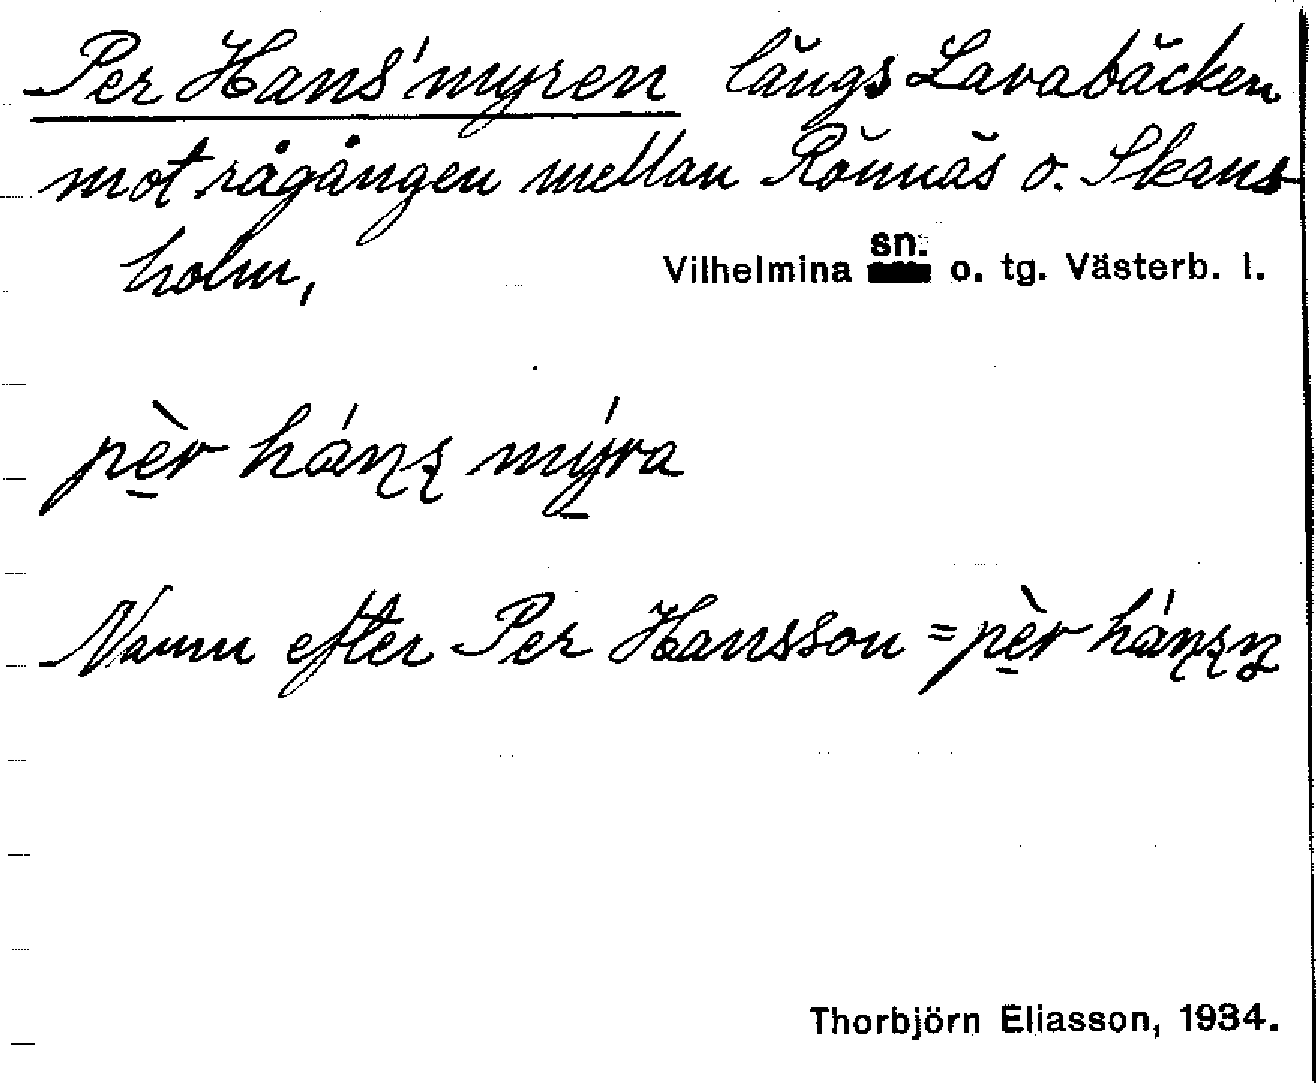 Per Hans'myren längs Lavabäcken
mot rågången mellan Rönnäs o. Skans-
holm,
Vilhelmina sn. o. tg. Västerb. l.
pèr hánz mýra
Namn efter Per Hansson = pèr hánzn
Thorbjörn Eliasson, 1934.